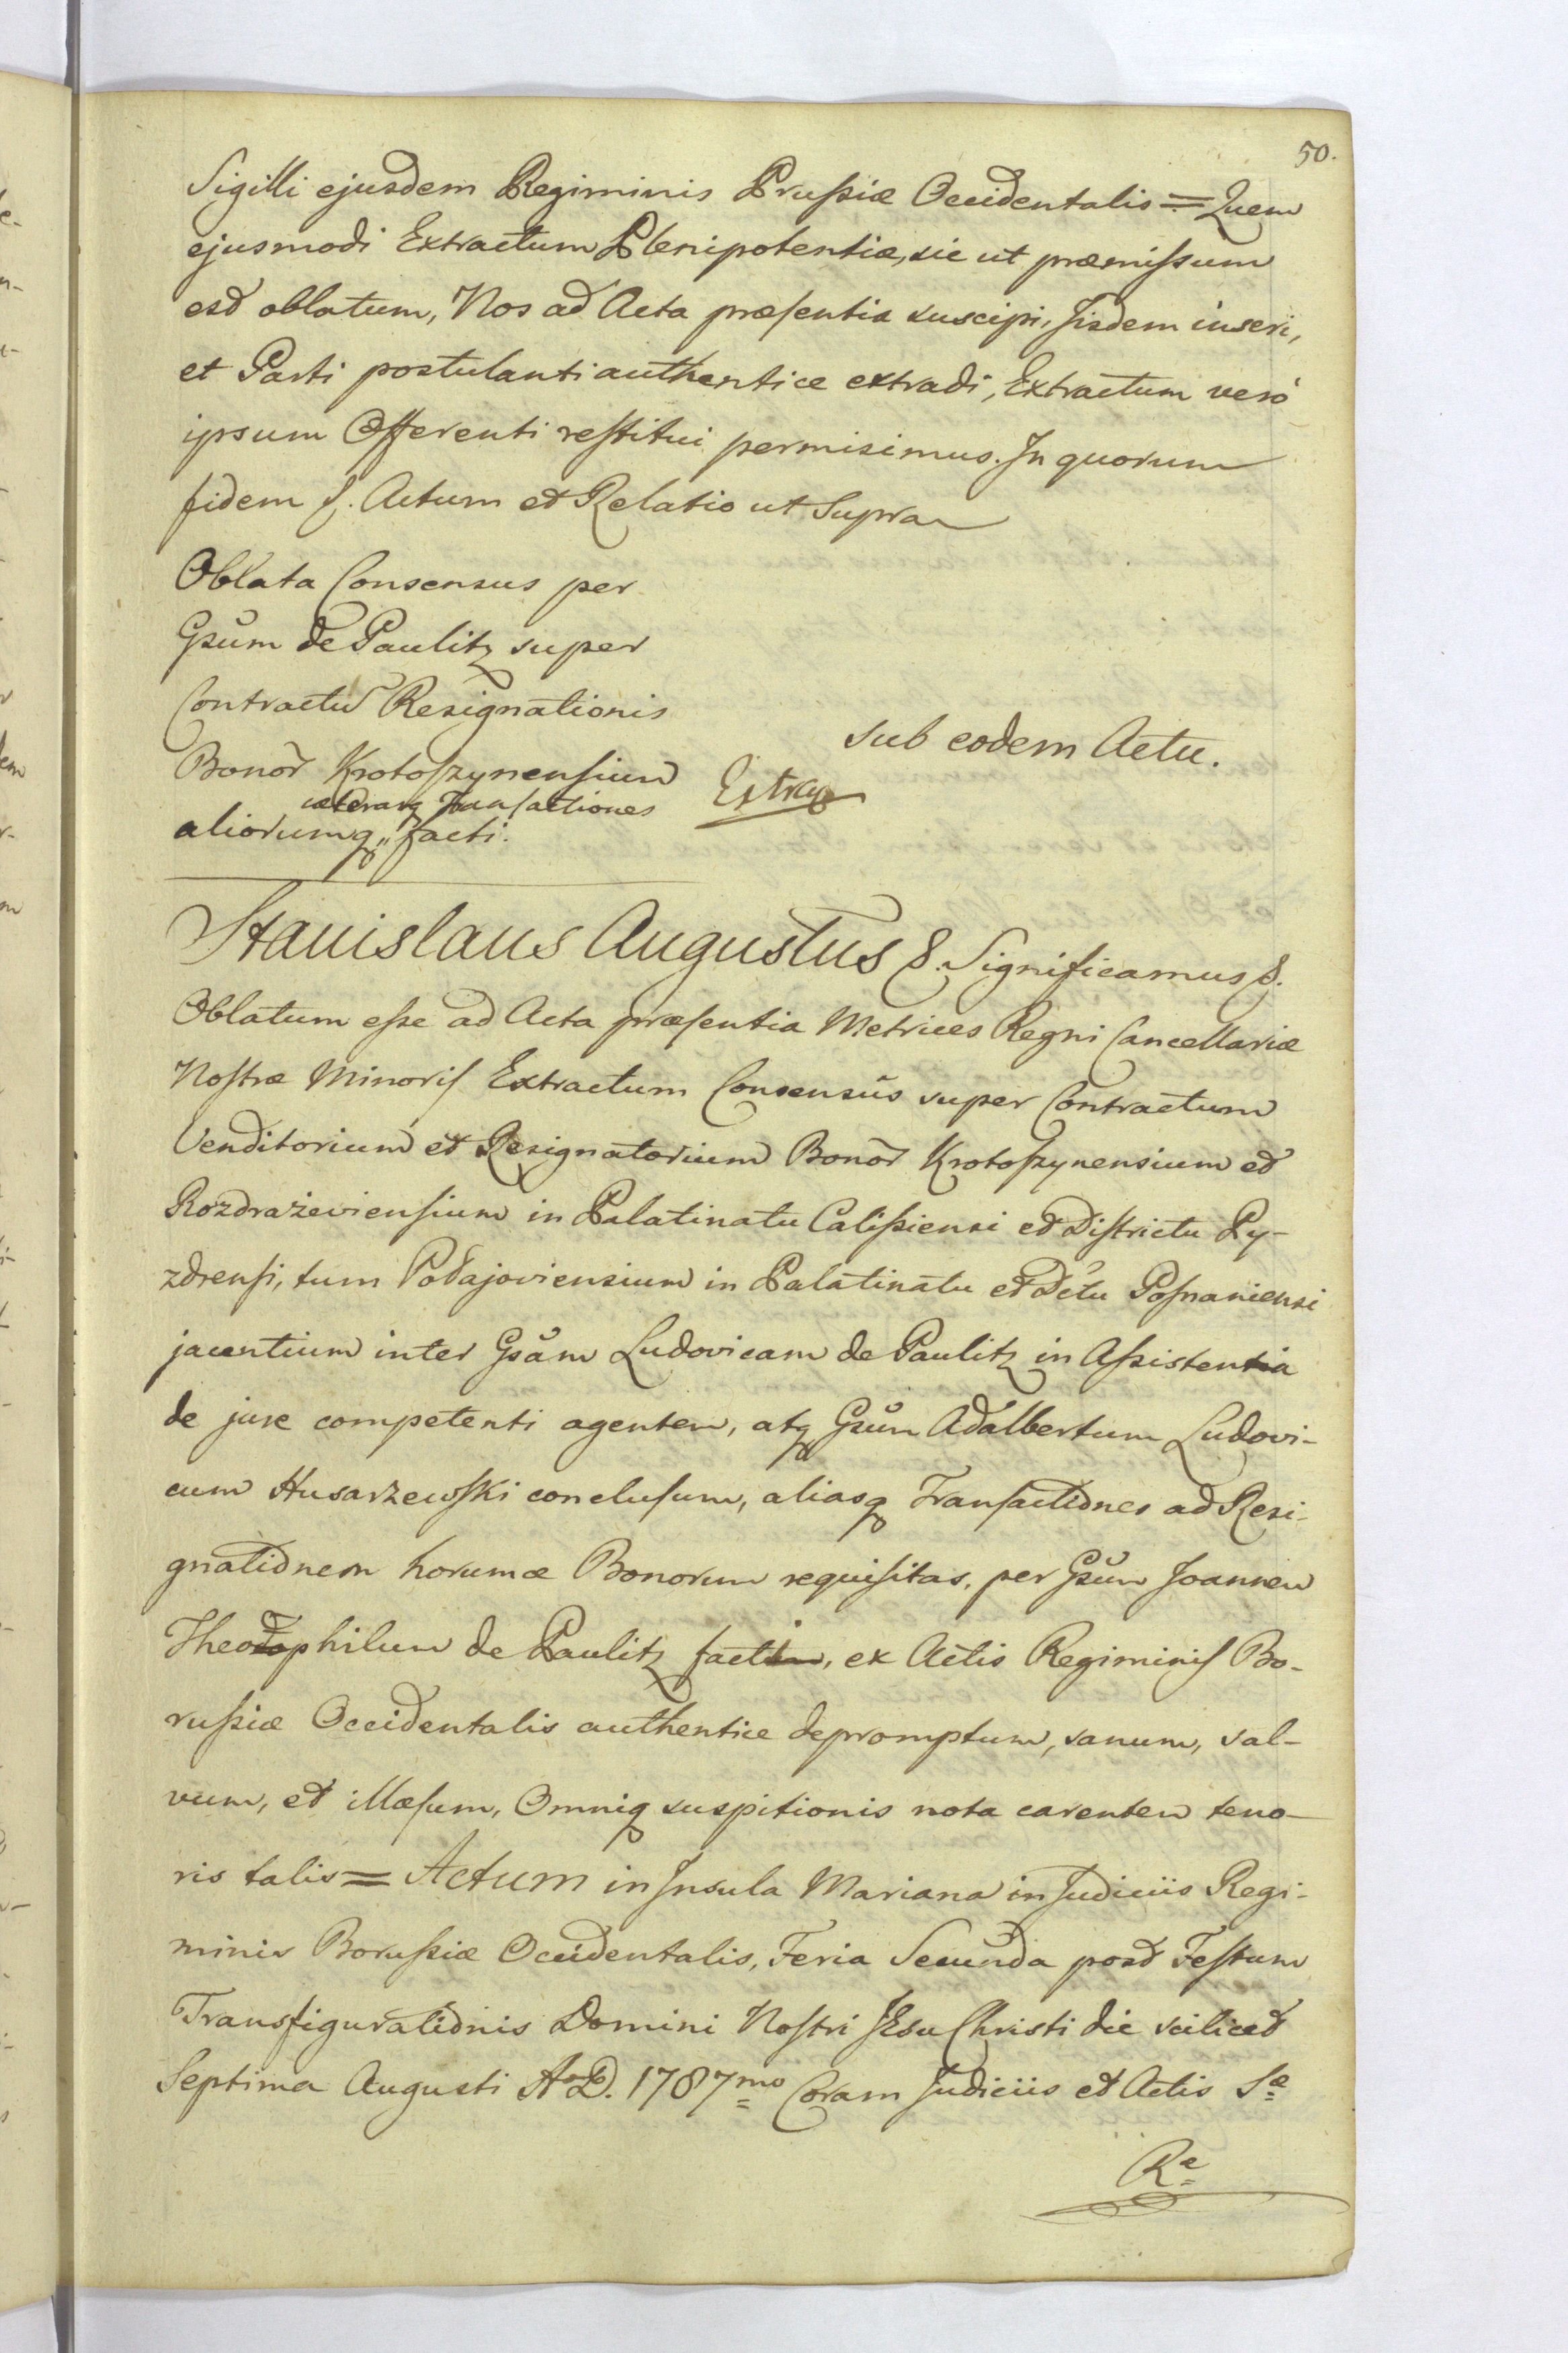 50.
Sigilli ejusdem Regiminis Prussiæ Occidentalis = Quem
ejusmodi Extractum Plenipotentiæ, sic ut præmissum
est oblatum, Nos ad Acta præsentia suscipi, Iisdem inseri,
et Parti postulanti authentice extradi, Extractum verò
ipsum Offerenti restitui permisimus. In quorum
fidem &. Actum et Relatio ut Supra
Oblata Consensus per
Gsum de Paulitz super
Contractu Resignationis
Bonor Krotoszynensium
cæterasq Transactiones
aliorumq" facti.
Sub eodem Actu.
Extrax
Stanislaus Augustus &. Significamus &.
Oblatum esse ad Acta præsentia Metrices Regni Cancellariæ
Nostræ Minoris Extractum Consensûs super Contractum
Venditorium et Resignatorium Bonor Krotoszynensium et
Rozdrażeviensium in Palatinatu Calissiensi et Districtu Py-
zdrensi, tum Podajoviensium in Palatinatu et Dctu Posnaniensi
jacentium inter Gsam Ludovicam de Paulitz in Assistentia
de jure competenti agentem, atq Gsum Adalbertum Ludovi-
cum Husarzewski conclusum, aliasq Transactiones ad Resi-
gnationem horumce Bonorum requisitas, per Gsum Joannem
Theophilum de Paulitz facti, ex Actis Regiminis Bo-
russiæ Occidentalis authentice depromptum, sanum, sal-
vum, et illæsum, Omniq suspitionis nota carentem teno-
ris talis = Actum in Insula Mariana in Judiciis Regi-
minis Borussiæ Occidentalis, Feria Secunda post Festum
Transfigurationis Domini Nostri JEsu Christi die scilicet
Septima Augusti A D. 1787mo Coram Judiciis et Actis Sæ
Rе